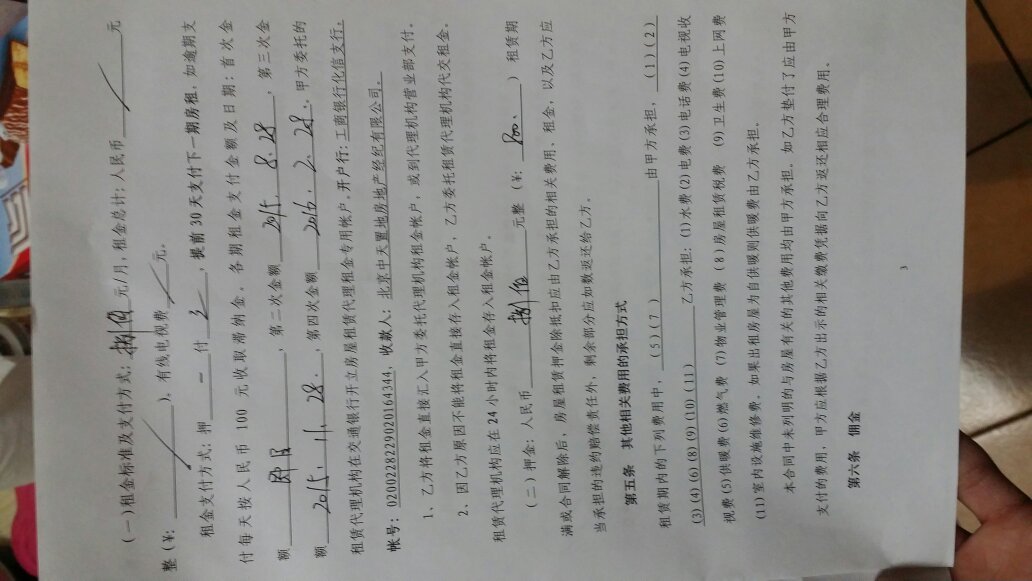 (一)租金标准及支付方式：捌佰 元/月,租金总计：人民币 元
整（¥： ）,有线电视费 元。
租金支付方式：押 一 付 3 ，提前30天支付下一期房租，如逾期支
付每天按人民币 100 元收取滞纳金。各期租金支付金额及日期：首次金
额 即日 ，第二次金额 2015 8.28 ，第三次金
额 2015. 11. 28. ，第四次金额 2016. 2. 28. 。甲方委托的
租赁代理机构在交通银行开立房屋租赁代理租金专用帐户，开户行：工商银行化信支行，
帐号：0200228229020164344，收款人：北京中天置地房地产经纪有限公司。
1、乙方将租金直接汇入甲方委托代理机构租金帐户，或到代理机构营业部支付。
2、因乙方原因不能将租金直接存入租金帐户，乙方委托租赁代理机构代交租金。
租赁代理机构应在 24 小时内将租金存入租金帐户。
(二)押金：人民币 捌佰 元整（¥: 800. ）租赁期
满或合同解除后，房屋租赁押金除抵扣应由乙方承担的相关费用、租金，以及乙方应
当承担的违约赔偿责任外，剩余部分应如数返还给乙方。
第五条 其他相关费用的承担方式
租赁期内的下列费用中，(5)(7) 由甲方承担，(1)(2)
(3)(4)(6)(8)(9)(10)(11) 乙方承担：(1)水费(2)电费(3)电话费(4)电视收
视费(5)供暖费(6)燃气费 (7)物业管理费 (8)房屋租赁税费 (9)卫生费(10)上网费
(11)室内设施维修费。如果出租房屋为自供暖则供暖费由乙方承担。
本合同中未列明的与房屋有关的其他费用均由甲方承担。如乙方垫付了应由甲方
支付的费用，甲方应根据乙方出示的相关缴费凭据向乙方返还相应合理费用。
第六条 佣金
3